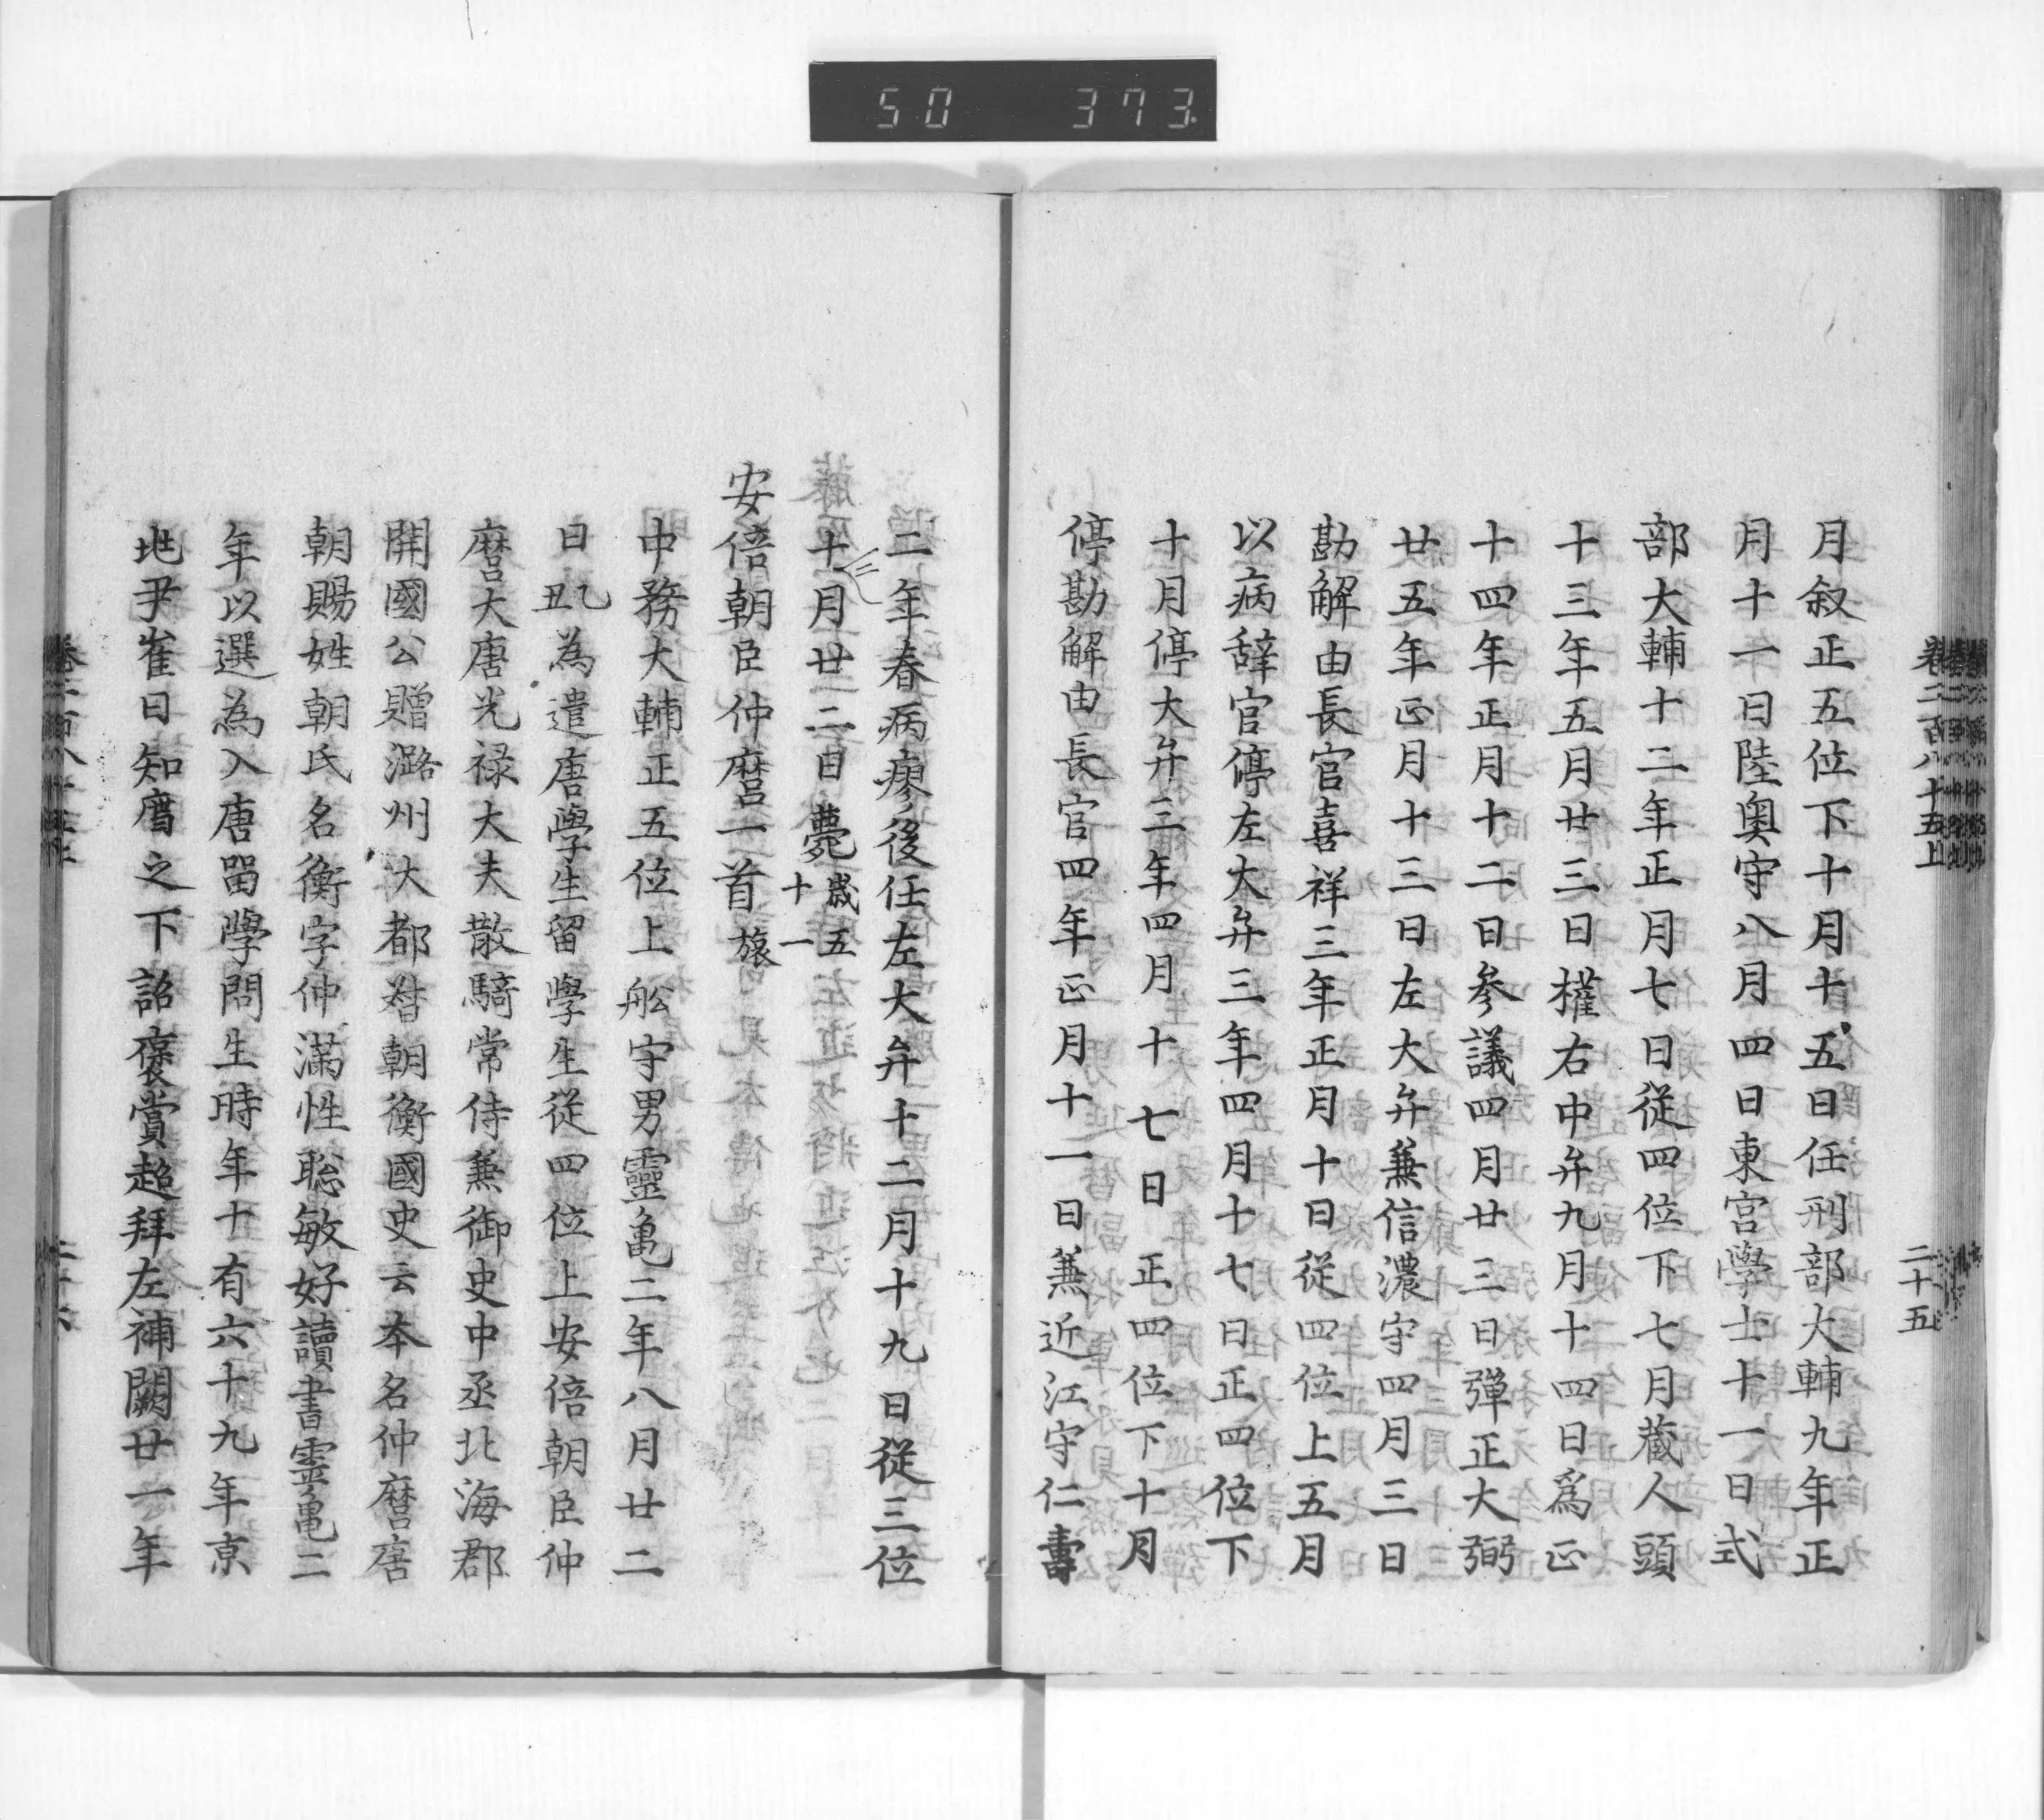 50 373
卷二百八十五上 二十五
月叙正五位下十月十五日任刑部大輔九年正
月十一日陸奥守八月四日東宮學士十一日式
部大輔十二年正月七日從四位下七月藏人頭
十三年五月廿三日權右中弁九月十四日爲正
十四年正月十二日参議四月廿三日彈正大弼
廿五年正月十三日左大弁兼信濃守四月三日
勘解由長官喜祥三年正月十日從四位上五月
以病辞官停左大弁三年四月十七日正四位下
十月停大弁三年四月十七日正四位下十月
停勘解由長官四年正月十一日兼近江守仁壽
二年春病瘳後任左大弁十二月十九日從三位
十月廿二日薨歳五十一
安倍朝臣仲麿一首旅
中務大輔正五位上舩守男靈亀二年八月廿二
日乙丑為遣唐學生留學生從四位上安倍朝臣仲
麿大唐光禄大夫散騎常侍兼御史中丞北海郡
開國公贈潞州大都督朝衡國史云本名仲麿唐
朝賜姓朝氏名衡字仲滿性聡敏好讀書霊亀二
年以選為入唐留學問生時年十有六十九年京
兆尹崔日知薦之下詔褒賞超拜左補闕廿一年